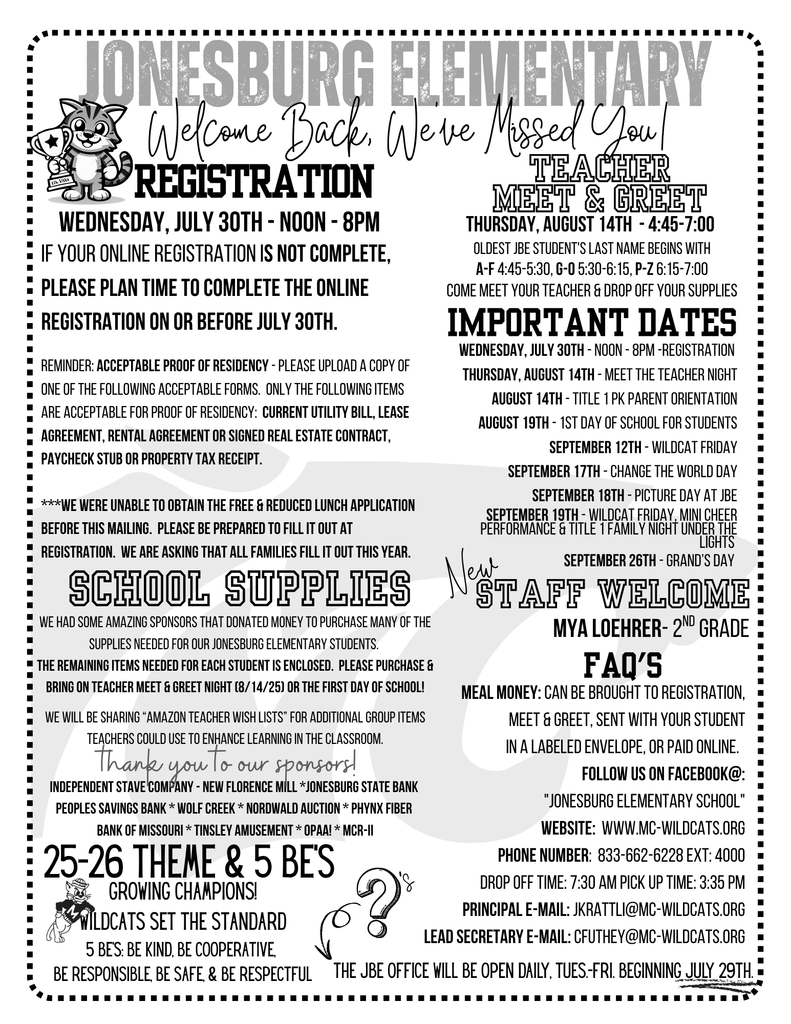 JONESBURG ELEMENTARY
Welcome Back, We've Missed You!
REGISTRATION
WEDNESDAY, JULY 30TH - NOON - 8PM
IF YOUR ONLINE REGISTRATION IS NOT COMPLETE,
PLEASE PLAN TIME TO COMPLETE THE ONLINE
REGISTRATION ON OR BEFORE JULY 30TH.
REMINDER: ACCEPTABLE PROOF OF RESIDENCY - PLEASE UPLOAD A COPY OF
ONE OF THE FOLLOWING ACCEPTABLE FORMS. ONLY THE FOLLOWING ITEMS
ARE ACCEPTABLE FOR PROOF OF RESIDENCY: CURRENT UTILITY BILL, LEASE
AGREEMENT, RENTAL AGREEMENT OR SIGNED REAL ESTATE CONTRACT,
PAYCHECK STUB OR PROPERTY TAX RECEIPT.
***WE WERE UNABLE TO OBTAIN THE FREE & REDUCED LUNCH APPLICATION
BEFORE THIS MAILING. PLEASE BE PREPARED TO FILL IT OUT AT
REGISTRATION. WE ARE ASKING THAT ALL FAMILIES FILL IT OUT THIS YEAR.
SCHOOL SUPPLIES
WE HAD SOME AMAZING SPONSORS THAT DONATED MONEY TO PURCHASE MANY OF THE
SUPPLIES NEEDED FOR OUR JONESBURG ELEMENTARY STUDENTS.
THE REMAINING ITEMS NEEDED FOR EACH STUDENT IS ENCLOSED. PLEASE PURCHASE &
BRING ON TEACHER MEET & GREET NIGHT (8/14/25) OR THE FIRST DAY OF SCHOOL!
WE WILL BE SHARING "AMAZON TEACHER WISH LISTS" FOR ADDITIONAL GROUP ITEMS
TEACHERS COULD USE TO ENHANCE LEARNING IN THE CLASSROOM.
thank you to our sponsors!
INDEPENDENT STAVE COMPANY - NEW FLORENCE MILL *JONESBURG STATE BANK
PEOPLES SAVINGS BANK * WOLF CREEK * NORDWALD AUCTION * PHYNX FIBER
BANK OF MISSOURI * TINSLEY AMUSEMENT * OPAA! * MCR-II
25-26 THEME & 5 BE'S
GROWING CHAMPIONS!
WILDCATS SET THE STANDARD
5 BE'S: BE KIND, BE COOPERATIVE,
BE RESPONSIBLE, BE SAFE, & BE RESPECTFUL
TEACHER
MEET & GREET
THURSDAY, AUGUST 14TH - 4:45-7:00
OLDEST JBE STUDENT'S LAST NAME BEGINS WITH
A-F 4:45-5:30, G-O 5:30-6:15, P-Z 6:15-7:00
COME MEET YOUR TEACHER & DROP OFF YOUR SUPPLIES
IMPORTANT DATES
WEDNESDAY, JULY 30TH - NOON - 8PM -REGISTRATION
THURSDAY, AUGUST 14TH - MEET THE TEACHER NIGHT
AUGUST 14TH - TITLE 1 PK PARENT ORIENTATION
AUGUST 19TH - 1ST DAY OF SCHOOL FOR STUDENTS
SEPTEMBER 12TH - WILDCAT FRIDAY
SEPTEMBER 17TH - CHANGE THE WORLD DAY
SEPTEMBER 18TH - PICTURE DAY AT JBE
SEPTEMBER 19TH - WILDCAT FRIDAY, MINI CHEER
PERFORMANCE & TITLE 1 FAMILY NIGHT UNDER THE
LIGHTS
SEPTEMBER 26TH - GRAND'S DAY
New
STAFF WELCOME
MYA LOEHRER- 2ND GRADE
FAQ'S
MEAL MONEY: CAN BE BROUGHT TO REGISTRATION,
MEET & GREET, SENT WITH YOUR STUDENT
IN A LABELED ENVELOPE, OR PAID ONLINE.
FOLLOW US ON FACEBOOK@:
"JONESBURG ELEMENTARY SCHOOL"
WEBSITE: WWW.MC-WILDCATS.ORG
PHONE NUMBER: 833-662-6228 EXT: 4000
DROP OFF TIME: 7:30 AM PICK UP TIME: 3:35 PM
PRINCIPAL E-MAIL: JKRATTLI@MC-WILDCATS.ORG
LEAD SECRETARY E-MAIL: CFUTHEY@MC-WILDCATS.ORG
?'s
THE JBE OFFICE WILL BE OPEN DAILY, TUES.-FRI. BEGINNING JULY 29TH.